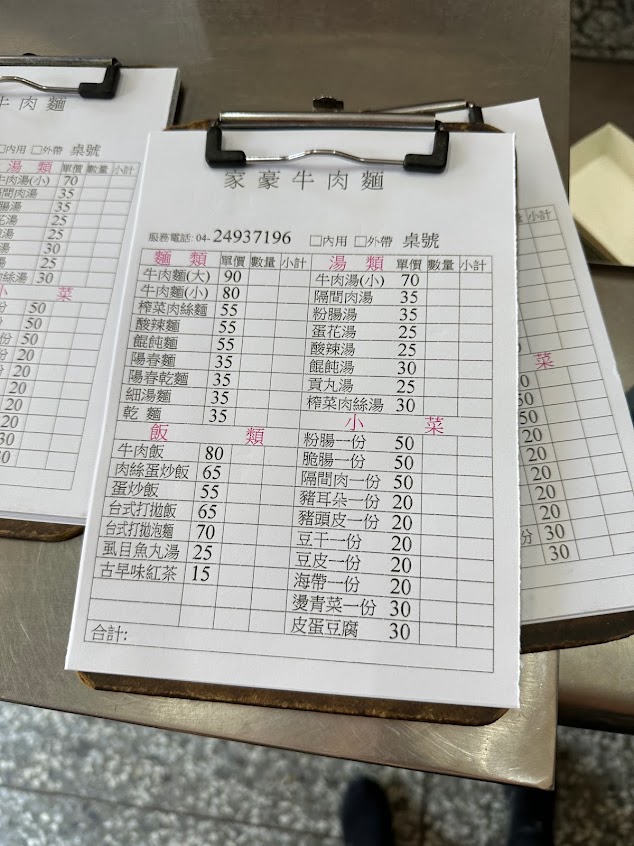 家豪牛肉麵
服務電話: 04-24937196 □內用 □外帶 桌號
麵類 單價 數量 小計 湯類 單價 數量 小計
牛肉麵(大) 90 牛肉湯(小) 70
牛肉麵(小) 80 隔間肉湯 35
榨菜肉絲麵 55 粉腸湯 35
酸辣麵 55 蛋花湯 25
餛飩麵 55 酸辣湯 25
陽春麵 35 餛飩湯 30
陽春乾麵 35 貢丸湯 25
細湯麵 35 榨菜肉絲湯 30
乾 麵 35 小菜
飯類 粉腸一份 50
牛肉飯 80 脆腸一份 50
肉絲蛋炒飯 65 隔間肉一份 50
蛋炒飯 55 豬耳朵一份 20
台式打拋飯 65 豬頭皮一份 20
台式打拋泡麵 70 豆干一份 20
虱目魚丸湯 25 豆皮一份 20
古早味紅茶 15 海帶一份 20
燙青菜一份 30
皮蛋豆腐 30
合計:
牛肉麵
□內用 □外帶 桌號
湯類 單價 數量 小計
牛肉湯(小) 70
隔間肉湯 35
腸湯 35
花湯 25
湯 25
湯 30
湯 25
絲湯 30
菜
份 50
份 50
份 50
份 20
份 20
20
20
20
30
30
小計
菜
50
20
20
20
20
20
份 30
30